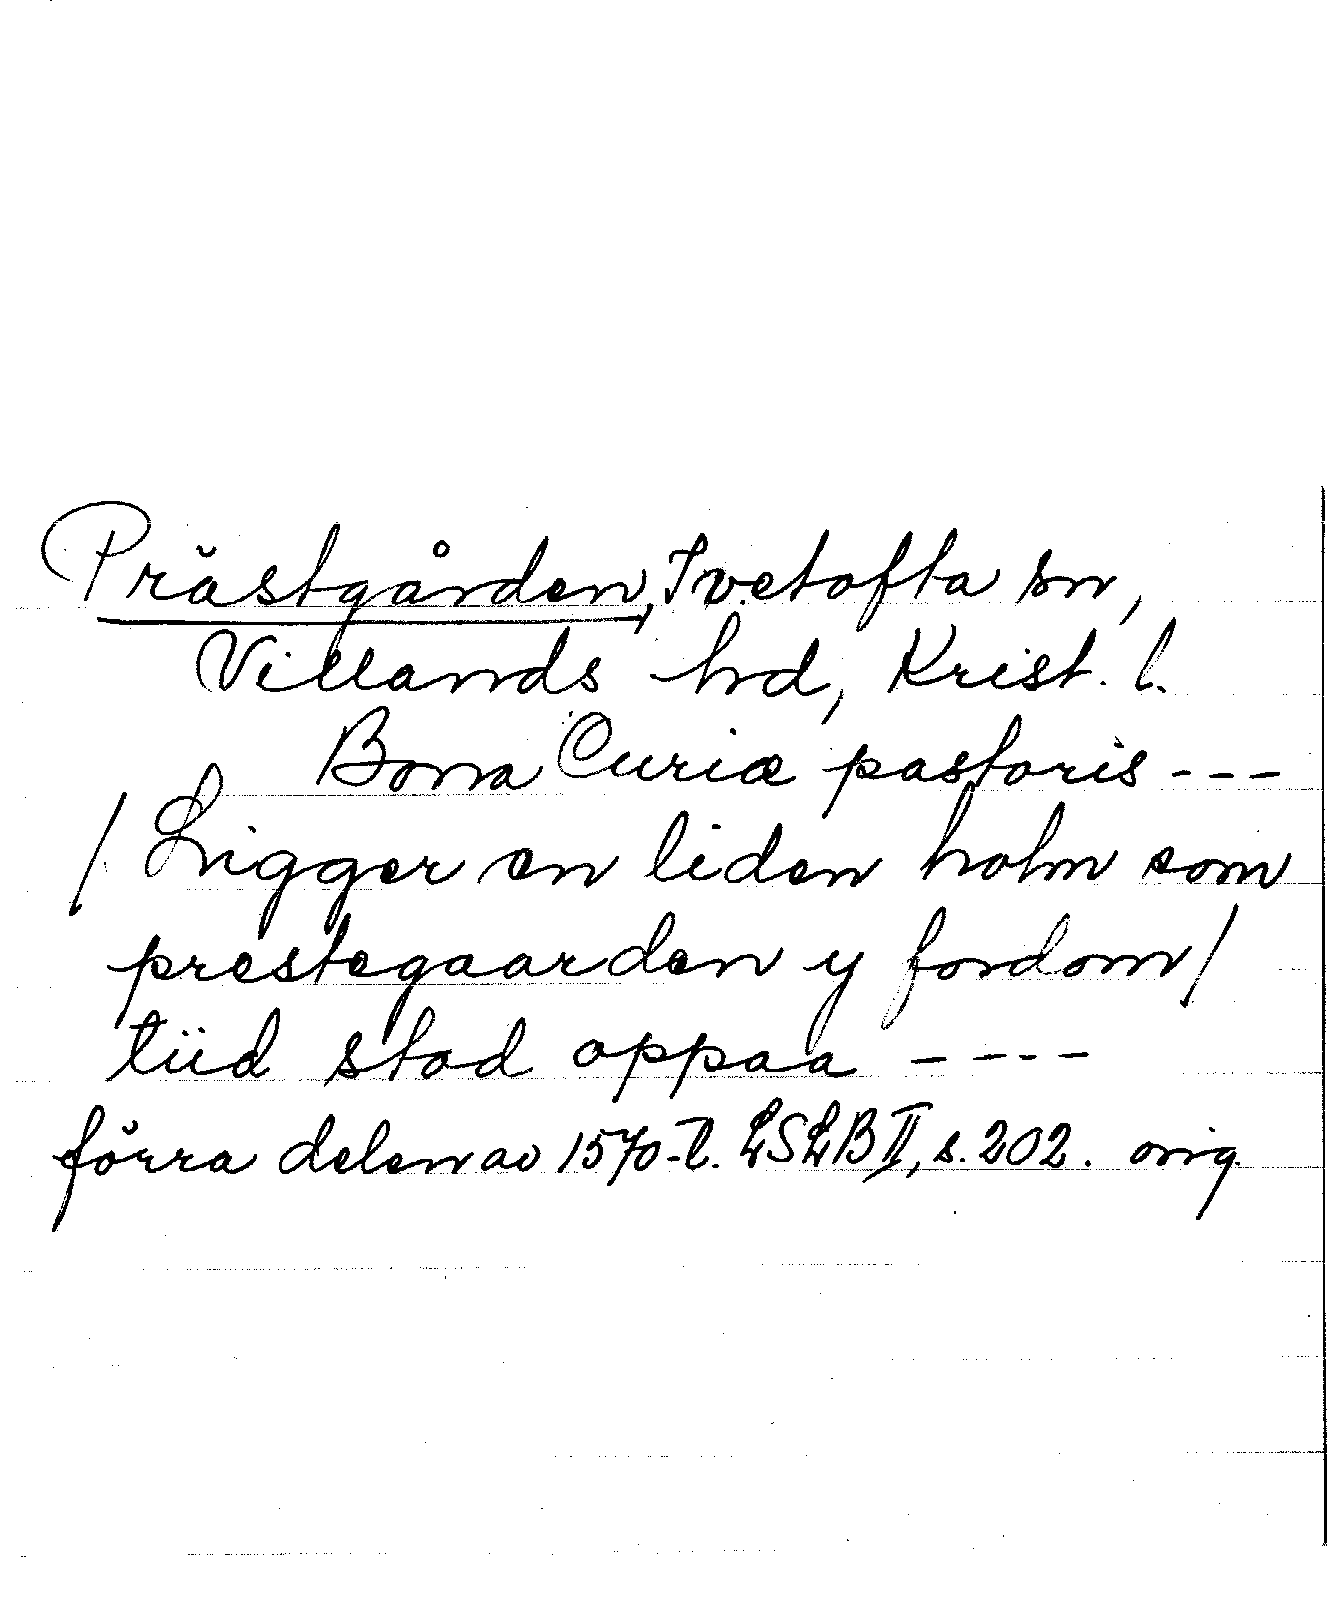 Prästgården, Ivetofta sn,
Villands hd, Krist. l.
Bona Curiæ pastoris ---
/ Ligger en liden holm som
prestegaarden y fordom/
tiid stod oppaa ----
förra delen av 1570-t. LSLB II, s. 202. orig.